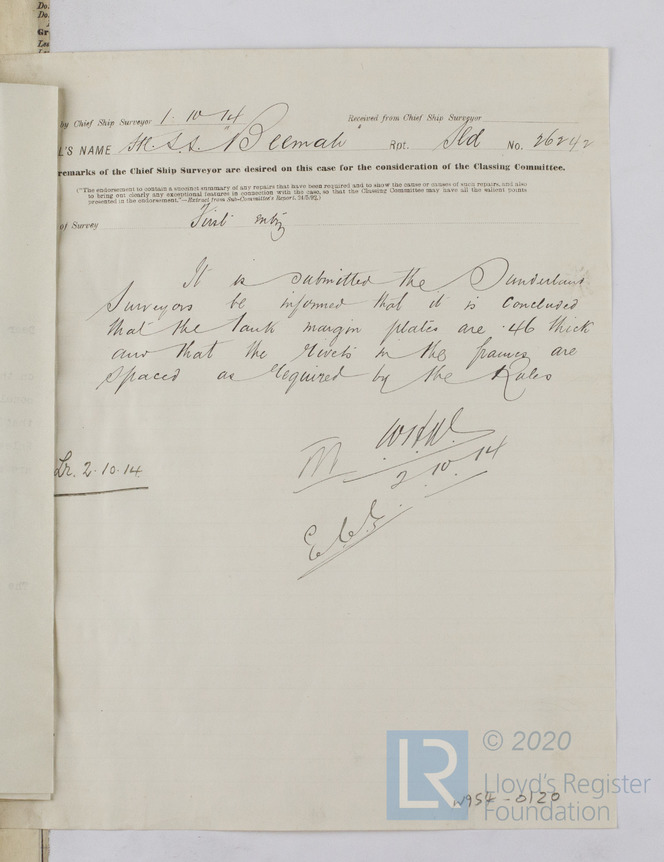 Do.
Do.
Gr
by Chief Ship Surveyor 1. 10. 14 Received from Chief Ship Surveyor
L'S NAME St. S.S. "Beemah" Rpt. Sld No. 26242
remarks of the Chief Ship Surveyor are desired on this case for the consideration of the Classing Committee.
("The endorsement to contain a succinct summary of any repairs that have been required and to show the cause or causes of such repairs, and also
to bring out clearly any exceptional features in connection with the case, so that the Classing Committee may have all the salient points
presented in the endorsement."—Extract from Sub-Committee's Report, 24/5/92.)
of Survey First entry
It is submitted the Sunderland
Surveyors be informed that it is concluded
that the tank margin plates are .46 thick
and that the rivets in the frames are
spaced as required by the Rules
2.10.14
Lr. 2.10.14
LR © 2020
Lloyd's Register
Foundation
W954-0120